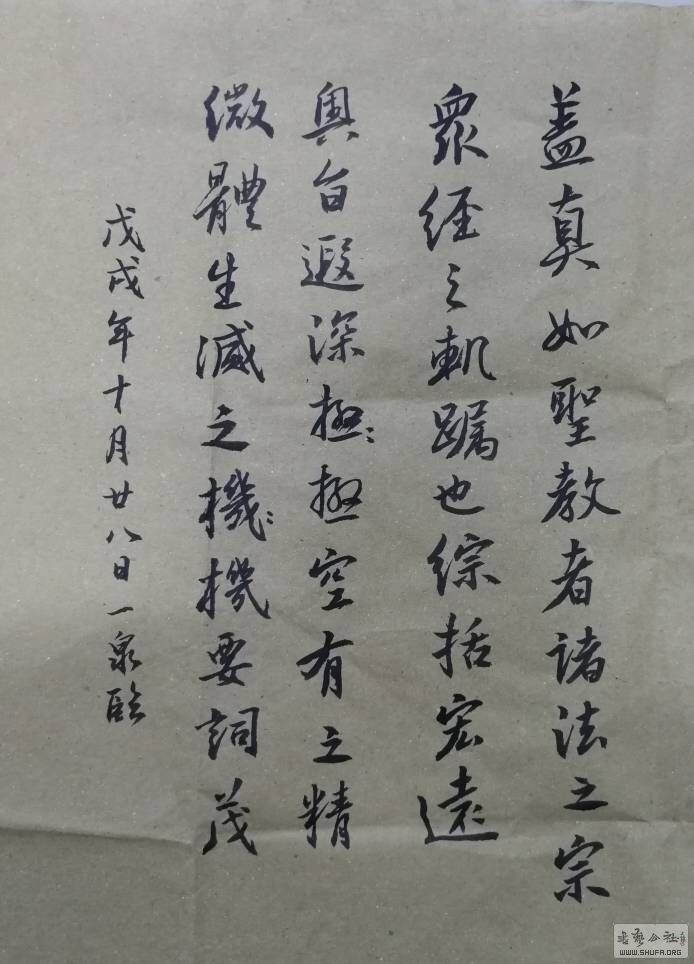 蓋真如聖教者諸法之宗
衆經之軌躅也綜括宏遠
奧旨遐深極極空有之精
微體生滅之機機要詞茂
戊戌年十月廿八日一泉臨
书艺公社
WWW.SHUFA.ORG